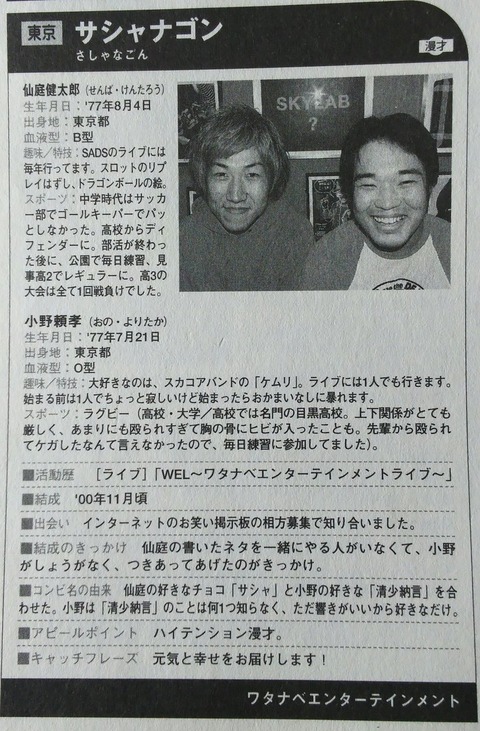 東京 サシャナゴン
さしゃなごん
漫才
仙庭健太郎（せんば・けんたろう）
生年月日：'77年8月4日
出身地：東京都
血液型：B型
趣味／特技：SADSのライブには
毎年行ってます。スロットのリプ
レイはずし、ドラゴンボールの絵。
スポーツ：中学時代はサッカ
ー部でゴールキーパーでパッ
としなかった。高校からディ
フェンダーに。部活が終わっ
た後に、公園で毎日練習、見
事高2でレギュラーに。高3の
大会は全て1回戦負けでした。
SKYLAB
?
小野頼孝（おの・よりたか）
生年月日：'77年7月21日
出身地：東京都
血液型：O型
趣味／特技：大好きなのは、スカコアバンドの「ケムリ」。ライブには1人でも行きます。
始まる前は1人でちょっと寂しいけど始まったらおかまいなしに暴れます。
スポーツ：ラグビー（高校・大学／高校では名門の目黒高校。上下関係がとても
厳しく、あまりにも殴られすぎて胸の骨にヒビが入ったことも。先輩から殴られ
てケガしたなんて言えなかったので、毎日練習に参加してました）。
■活動歴 ［ライブ］「WEL～ワタナベエンターテインメントライブ～」
■結成 '00年11月頃
■出会い インターネットのお笑い掲示板の相方募集で知り合いました。
■結成のきっかけ 仙庭の書いたネタを一緒にやる人がいなくて、小野
がしょうがなく、つきあってあげたのがきっかけ。
■コンビ名の由来 仙庭の好きなチョコ「サシャ」と小野の好きな「清少納言」を合
わせた。小野は「清少納言」のことは何1つ知らなく、ただ響きがいいから好きなだけ。
■アピールポイント ハイテンション漫才。
■キャッチフレーズ 元気と幸せをお届けします！
ワタナベエンターテインメント